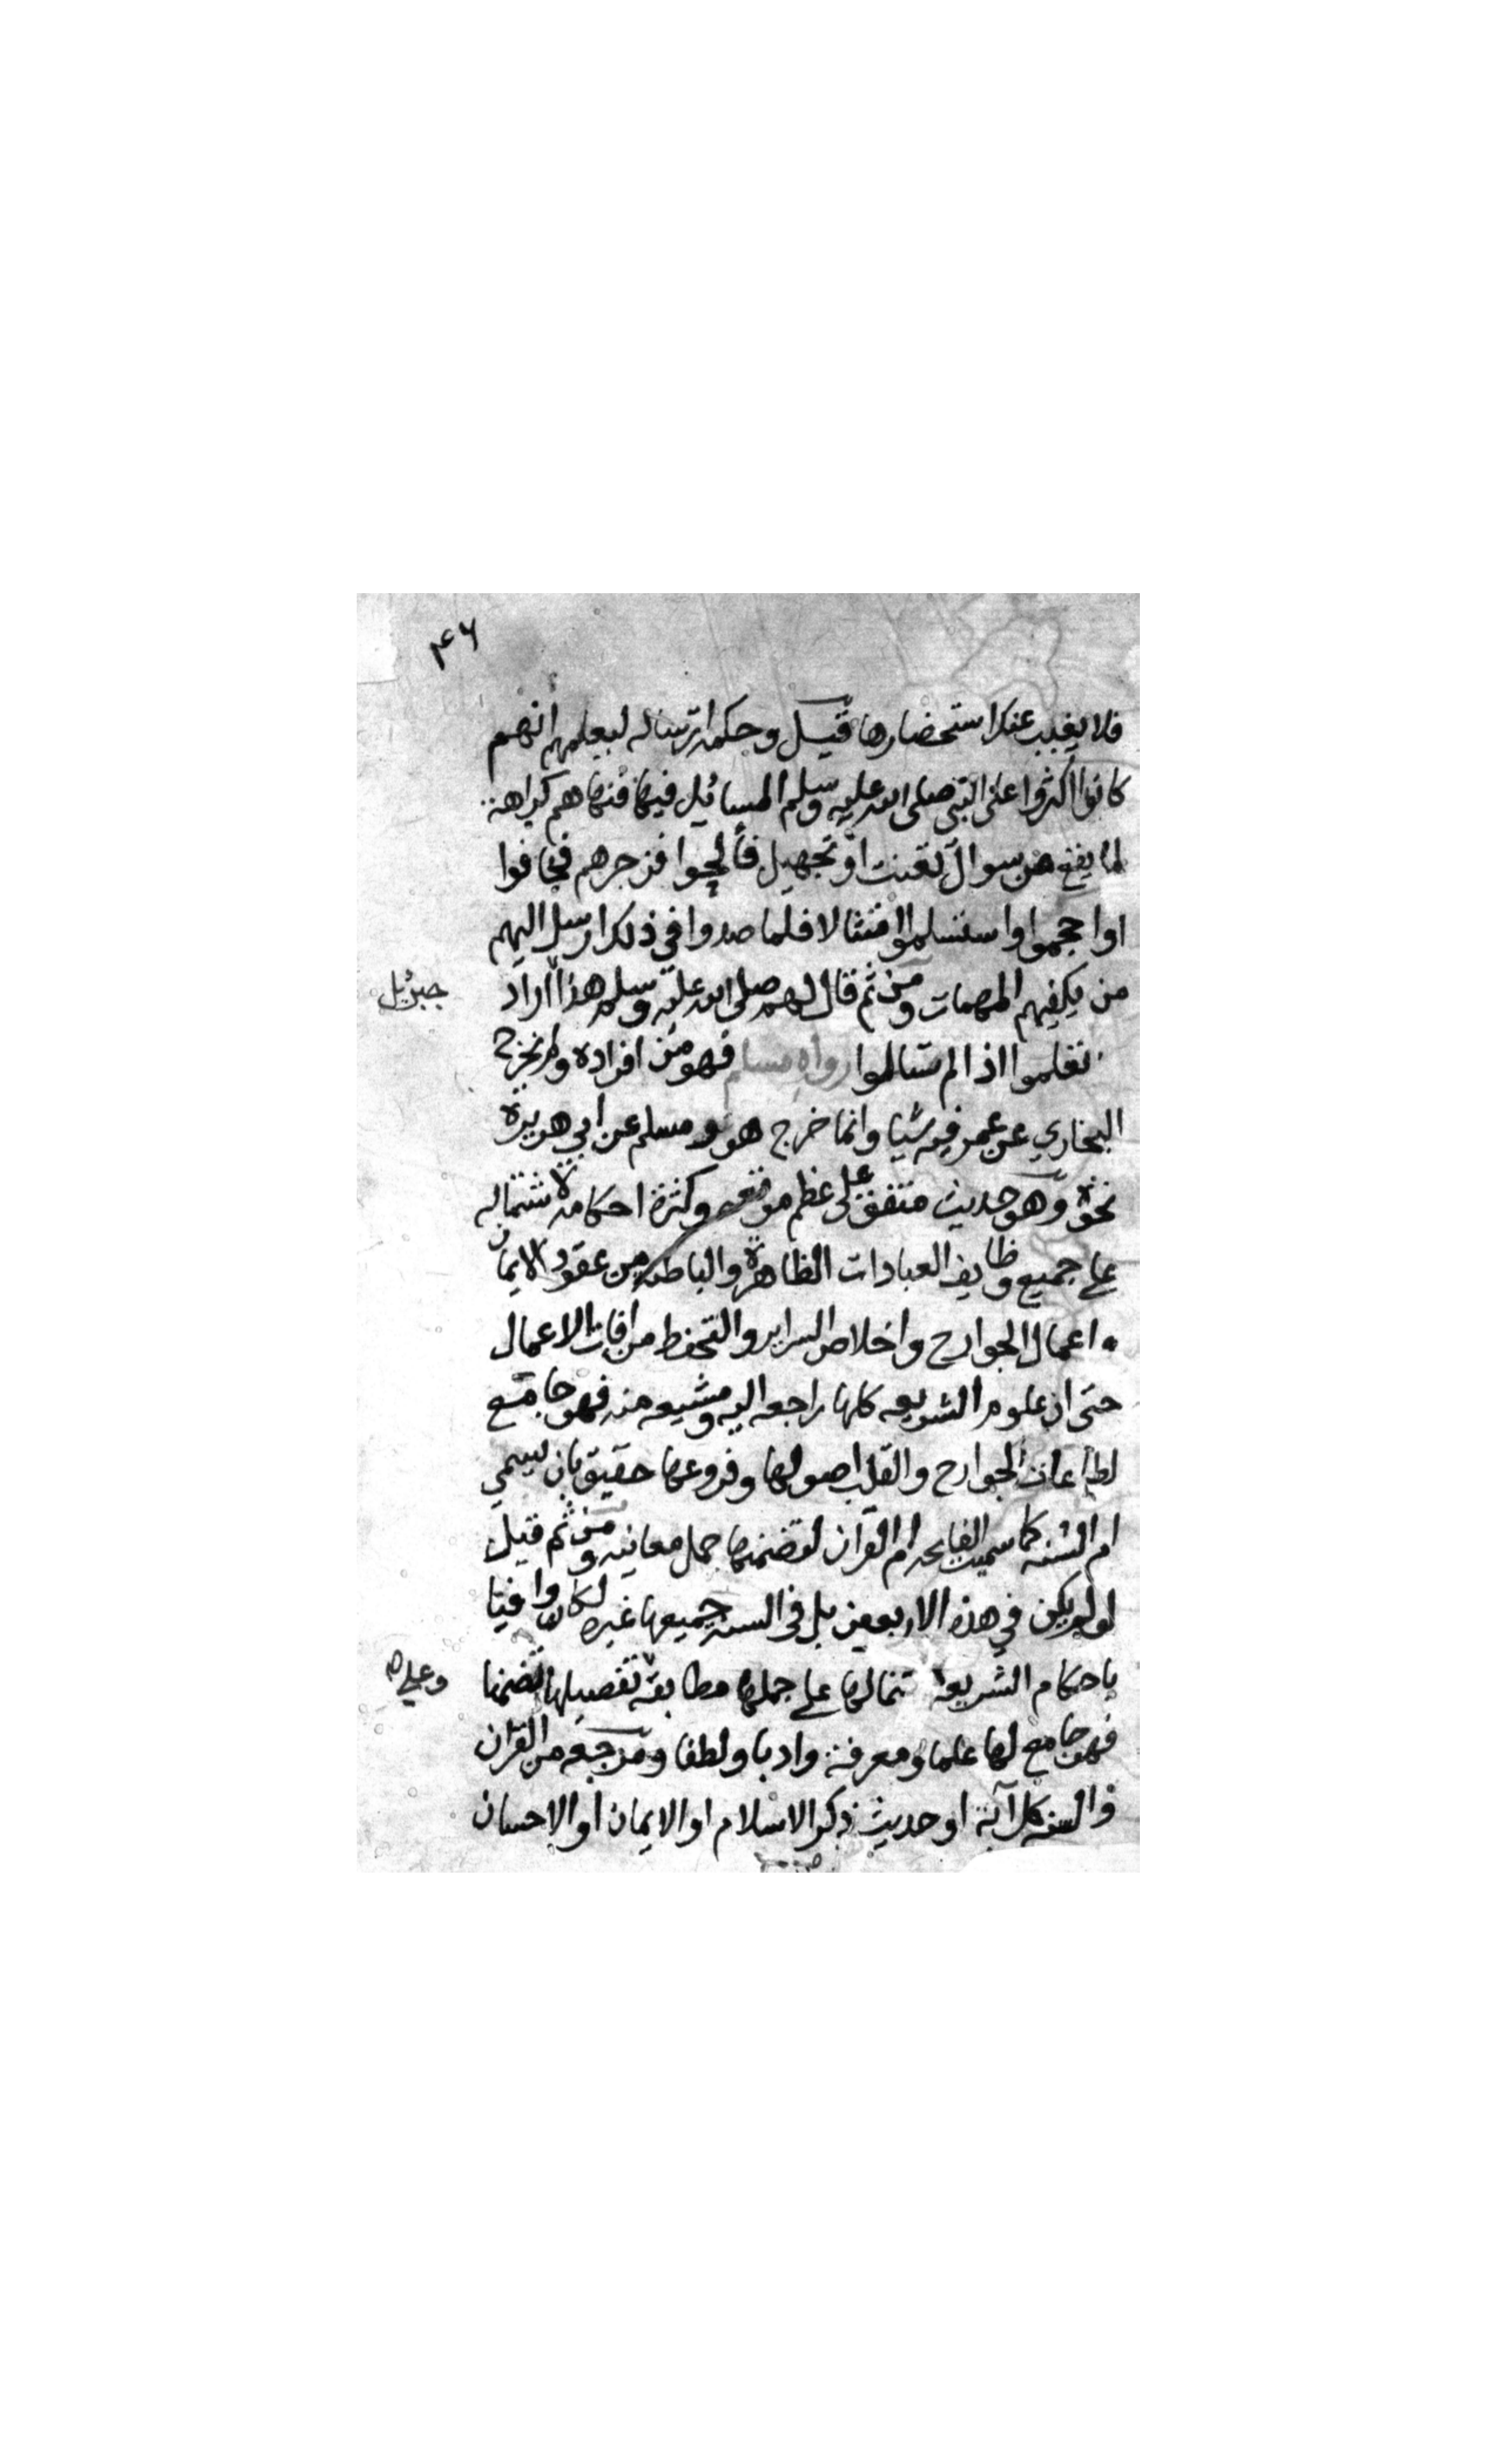 ٤٦
فلا يغيب عنك استحضارها قيل وحكمة ارساله ليعلمهم انهم
كانوا اكثروا على النبي صلى الله عليه وسلم المسائيل فيها فنهاهم كراهة
لما يقع من سوال تعنت او تجهيل فألحوا فزجرهم فخافوا
اواحجموا واستسلموا امتثالا فلما صدوا في ذلك ارسل اليهم
من يكفيهم المهمات ومن ثم قال لهم صلى الله عليه وسلم هذا اراد
جبرئيل
تعلموا اذا لم تسالوا رواه مسلم فهو من افراده ولم يخرج
البخاري عن عمر فيه شيا وانما خرج هو ومسلم عن ابي هريرة
نحوه وهو حديث متفق على عظم موقعه وكثرة احكامه لاشتماله
على جميع وظايف العبادات الظاهرة والباطنة من عقود الايمان
واعمال الجوارح واخلاص السراير والتحفظ من افات الاعمال
حتى ان علوم الشريعه كلها راجعه اليه ومتشعبه منه فهو جامع
لطاعات الجوارح والقلب اصولها وفروعها حقيق بان يسمى
ام السنه كما سميت الفاتحه ام القران لتضمنها جمل معانيه ومن ثم قيل
لو لم يكن في هذه الاربعين بل في السنه جميعها غيره لكان وافيا
باحكام الشريعه تمالها على جملها مطابقة تفصيلها تضمنا
وعلى
فهو جامع لها علما ومعرفة وادبا ولطفا ومرجعه من القران
والسنه كل آية او حديث ذكر الاسلام او الايمان او الاحسان